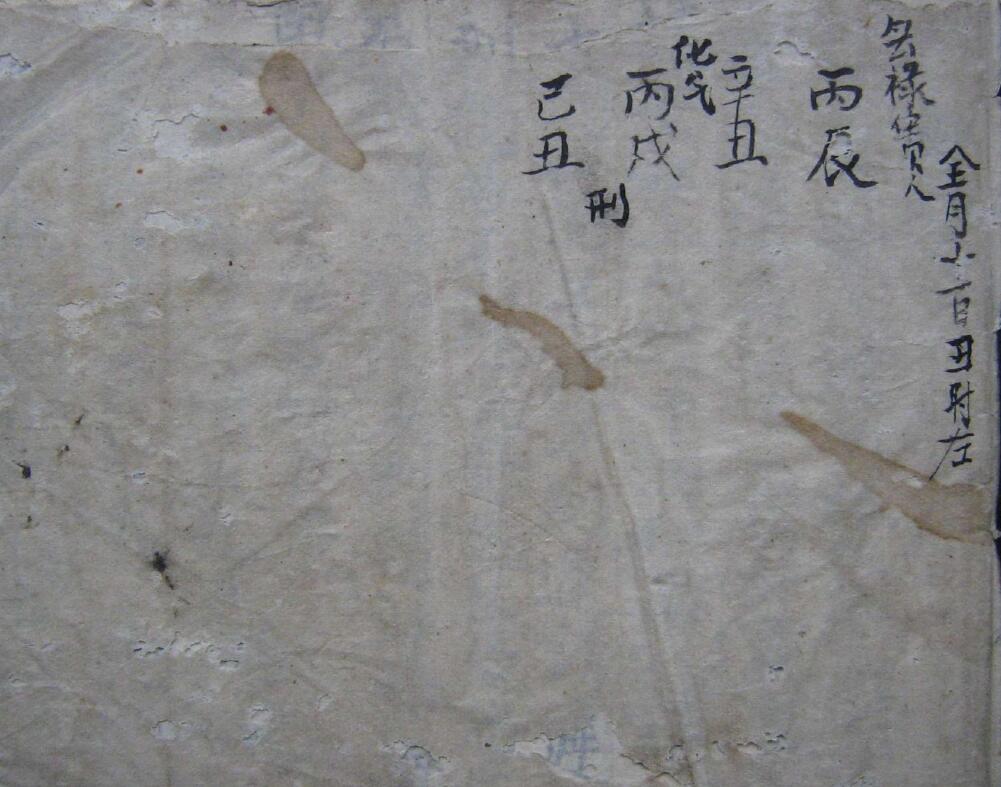 全月小一百丑时左
禄貴人
丙辰
辛丑
化气
丙戌
刑
己丑